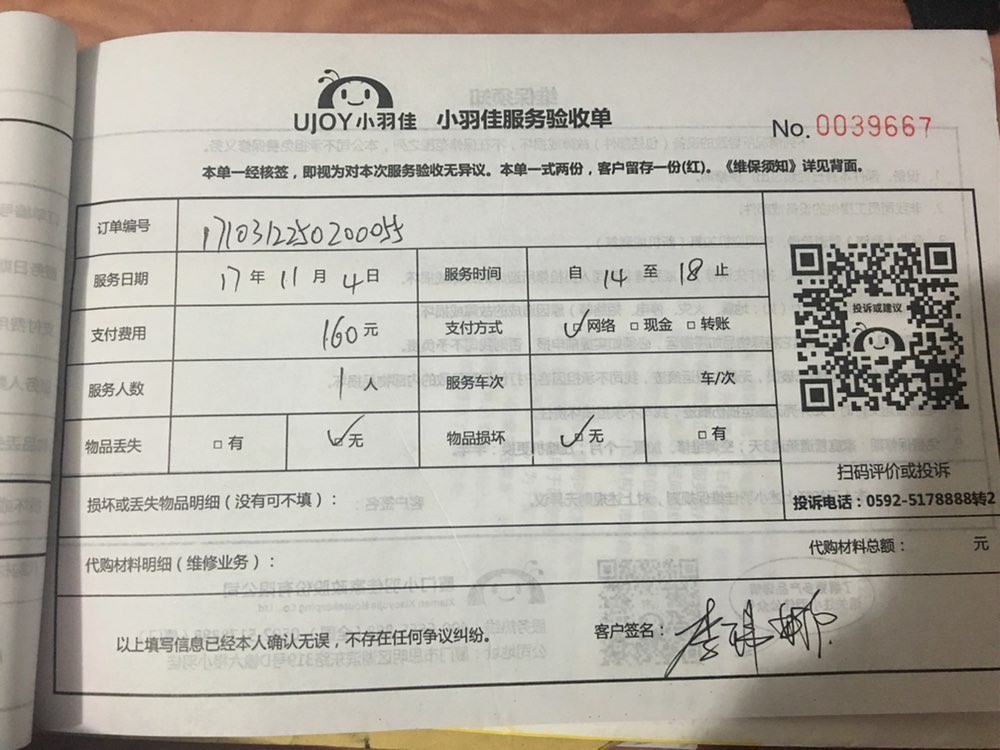 UJOY小羽佳 小羽佳服务验收单
No. 0039667
本单一经核签，即视为对本次服务验收无异议。本单一式两份，客户留存一份(红)。《维保须知》详见背面。
订单编号 1710312250200055
服务日期 17年11月4日 服务时间 自14至18止
支付费用 160元 支付方式 ☑网络 □现金 □转账
服务人数 1人 服务车次 车/次
物品丢失 □有 ☑无 物品损坏 ☑无 □有
投诉或建议
扫码评价或投诉
投诉电话：0592-5178888转2
损坏或丢失物品明细（没有可不填）：
代购材料明细（维修业务）： 代购材料总额： 元
以上填写信息已经本人确认无误，不存在任何争议纠纷。 客户签名：